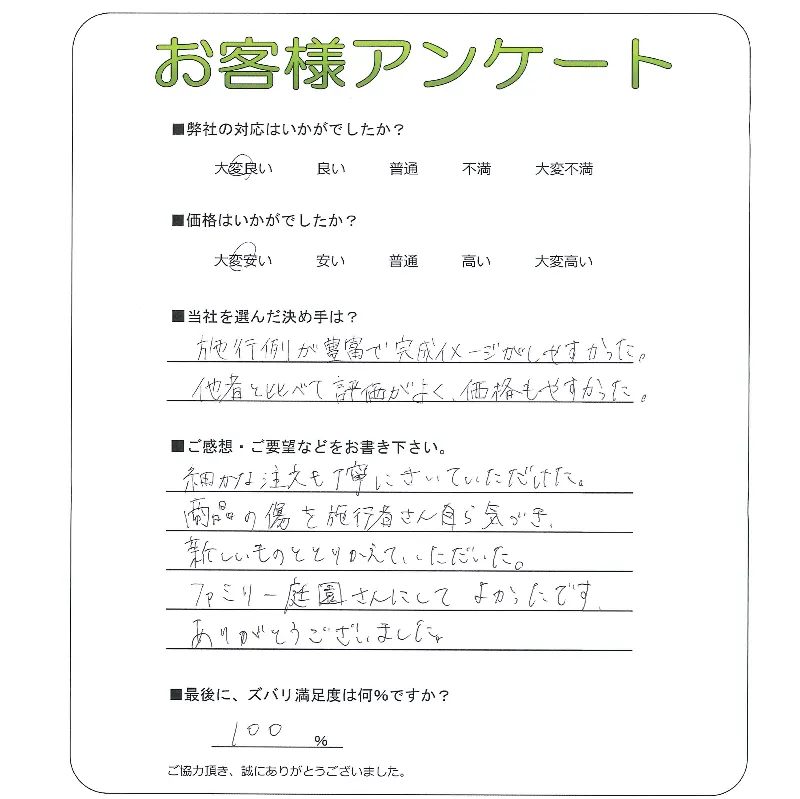 お客様アンケート
■弊社の対応はいかがでしたか？
大変良い 良い 普通 不満 大変不満
■価格はいかがでしたか？
大変安い 安い 普通 高い 大変高い
■当社を選んだ決め手は？
施行例が豊富で完成イメージがしやすかった。
他者と比べて評価がよく、価格もやすかった。
■ご感想・ご要望などをお書き下さい。
細かな注文も丁寧にきいていただけた。
商品の傷を施行者さん自ら気づき、
新しいものととりかえていただいた。
ファミリー庭園さんにして よかったです。
ありがとうございました。
■最後に、ズバリ満足度は何%ですか？
100 %
ご協力頂き、誠にありがとうございました。